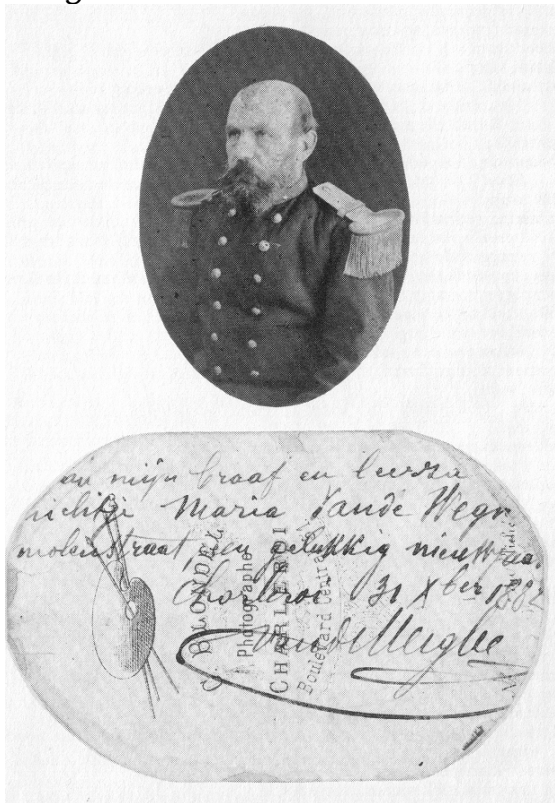 an mijn braaf en leerza
nichtje Maria Vande Wegh
molenstraat, een gelukkig nieuwjaar
Charleroi 31 Xber 1882
C. BLONDEL
Photographe
CHARLEROI
Boulevard Central